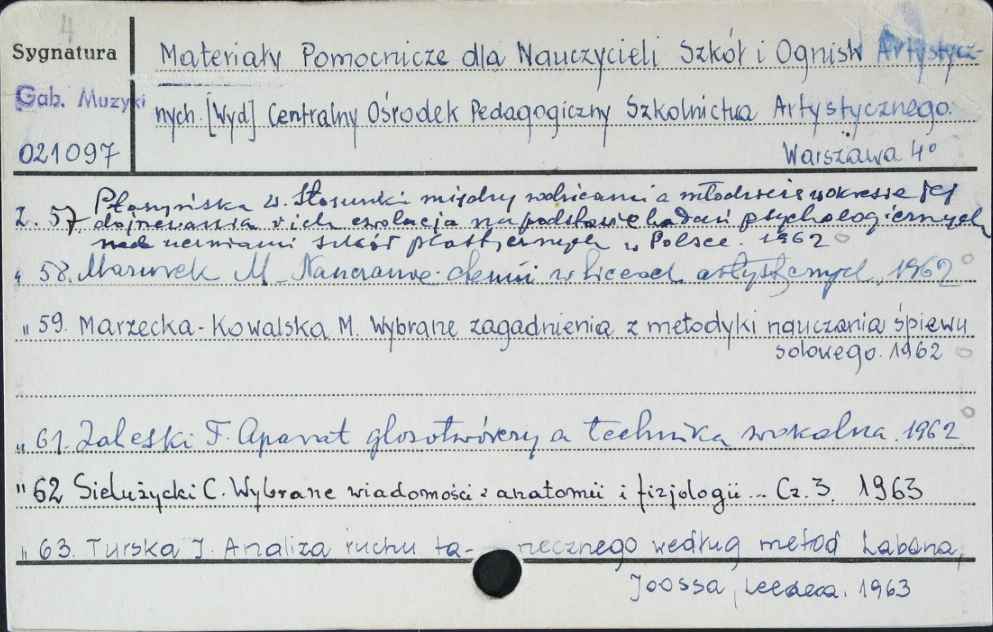 4
Sygnatura
Materiały Pomocnicze dla Nauczycieli Szkół i Ognisk Artystycz-
Gab. Muzyki
nych. [Wyd] Centralny Ośrodek Pedagogiczny Szkolnictwa Artystycznego.
021097
Warszawa 4°
Z. 57. Płoszyńska W. Stosunki między rodzicami a młodzieżą w okresie jej
dojrzewania i ich ewolucja na podstawie badań psychologicznych
nad uczniami szkół plastycznych w Polsce. 1962
" 58. Mazurek M. Nauczanie chemii w liceach artystycznych, 1962
" 59. Marzecka-Kowalska M. Wybrane zagadnienia z metodyki nauczania śpiewu
solowego. 1962
" 61. Zaleski F. Aparat głosotwórczy a technika wokalna. 1962
" 62 Sielużycki C. Wybrane wiadomości z anatomii i fizjologii... Cz. 3. 1963
" 63. Turska J. Analiza ruchu ta- necznego według metod Labana,
Joossa, Leedera. 1963